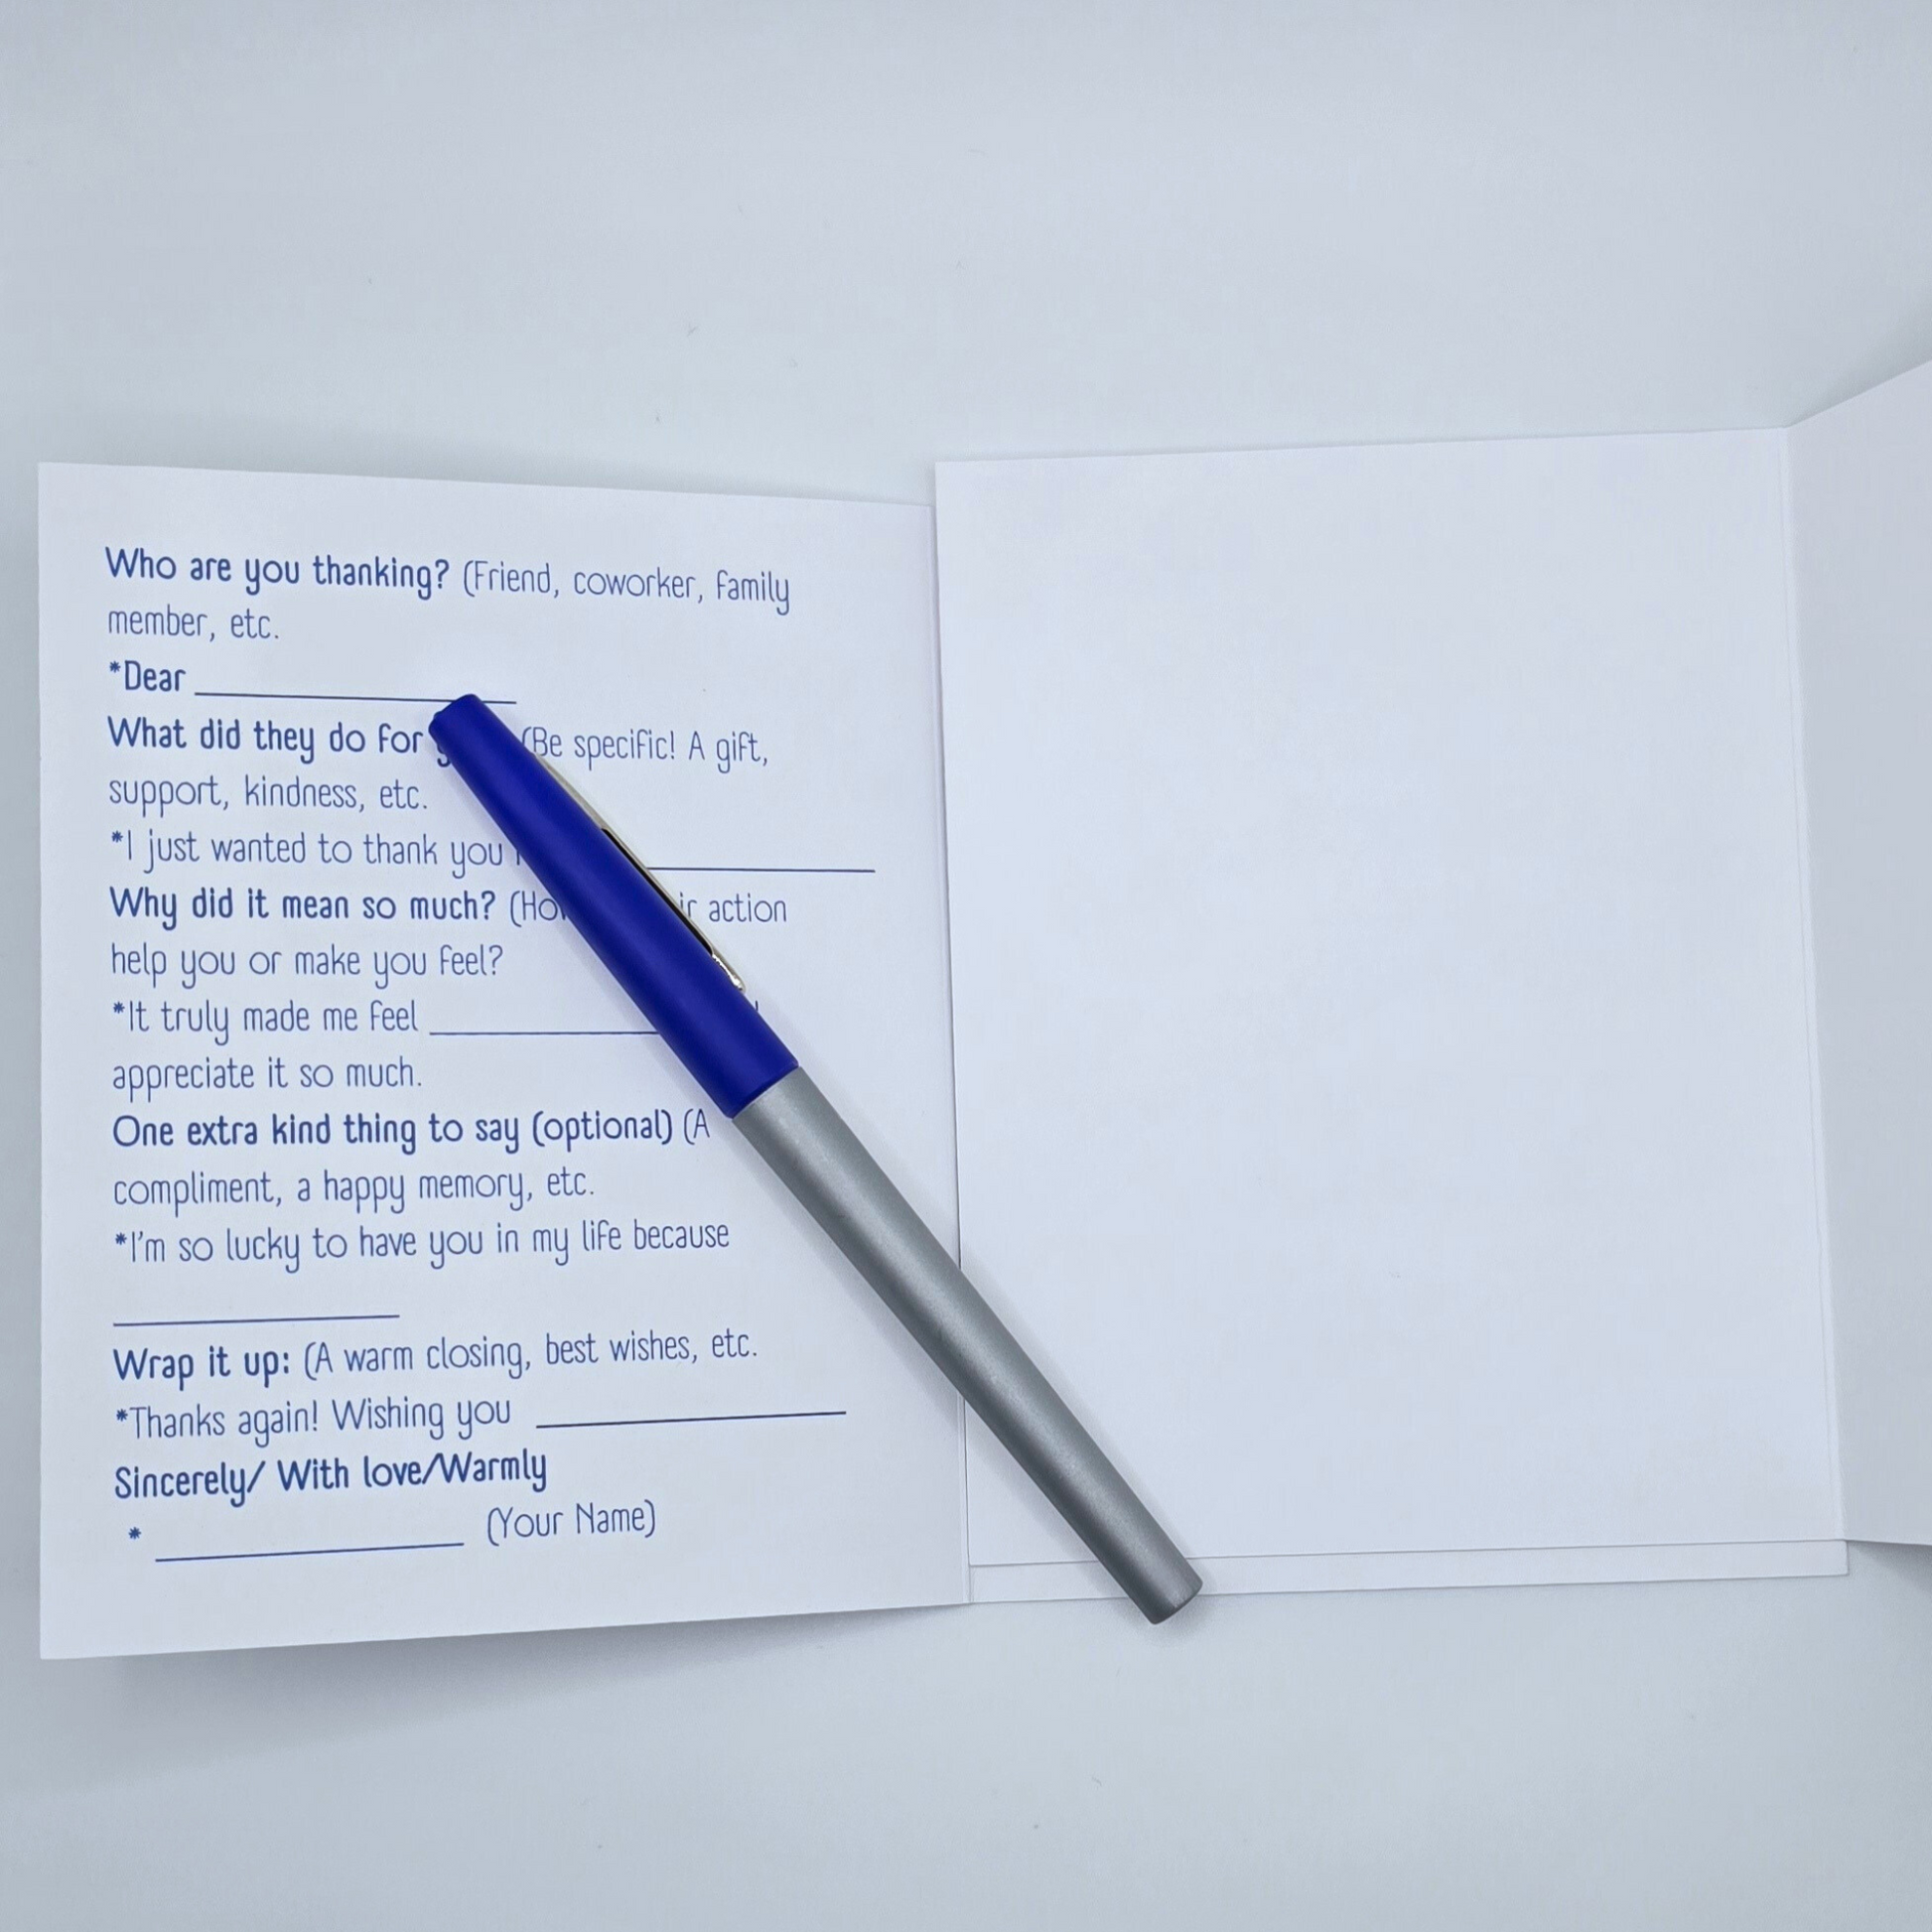 Who are you thanking? (Friend, coworker, family
member, etc.
*Dear
What did they do for (Be specific! A gift,
support, kindness, etc.
*I just wanted to thank you
Why did it mean so much? (How action
help you or make you feel?
*It truly made me feel
appreciate it so much.
One extra kind thing to say (optional) (A
compliment, a happy memory, etc.
*I'm so lucky to have you in my life because
Wrap it up: (A warm closing, best wishes, etc.
*Thanks again! Wishing you
Sincerely/ With love/Warmly
* (Your Name)